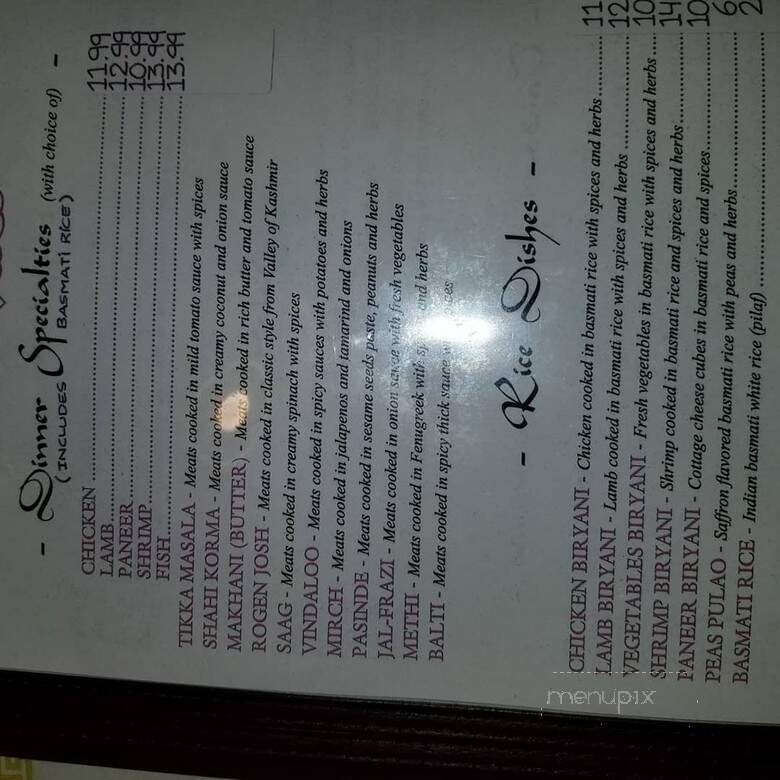 - Dinner Specialties (with choice of) -
(INCLUDES BASMATI RICE)
CHICKEN 11.99
LAMB 12.99
PANEER 10.99
SHRIMP 13.99
FISH 13.99
TIKKA MASALA - Meats cooked in mild tomato sauce with spices
SHAHI KORMA - Meats cooked in creamy coconut and onion sauce
MAKHANI (BUTTER) - Meats cooked in rich butter and tomato sauce
ROGEN JOSH - Meats cooked in classic style from Valley of Kashmir
SAAG - Meats cooked in creamy spinach with spices
VINDALOO - Meats cooked in spicy sauces with potatoes and herbs
MIRCH - Meats cooked in jalapenos and tamarind and onions
PASINDE - Meats cooked in sesame seeds paste, peanuts and herbs
JAL-FRAZI - Meats cooked in onion sauce with fresh vegetables
METHI - Meats cooked in Fenugreek with and herbs
BALTI - Meats cooked in spicy thick sauce
- Rice Dishes -
CHICKEN BIRYANI - Chicken cooked in basmati rice with spices and herbs 11
LAMB BIRYANI - Lamb cooked in basmati rice with spices and herbs 12
VEGETABLES BIRYANI - Fresh vegetables in basmati rice with spices and herbs 10
SHRIMP BIRYANI - Shrimp cooked in basmati rice and spices and herbs 14
PANEER BIRYANI - Cottage cheese cubes in basmati rice and spices 10
PEAS PULAO - Saffron flavored basmati rice with peas and herbs 6
BASMATI RICE - Indian basmati white rice (pilaf) 2
menupix